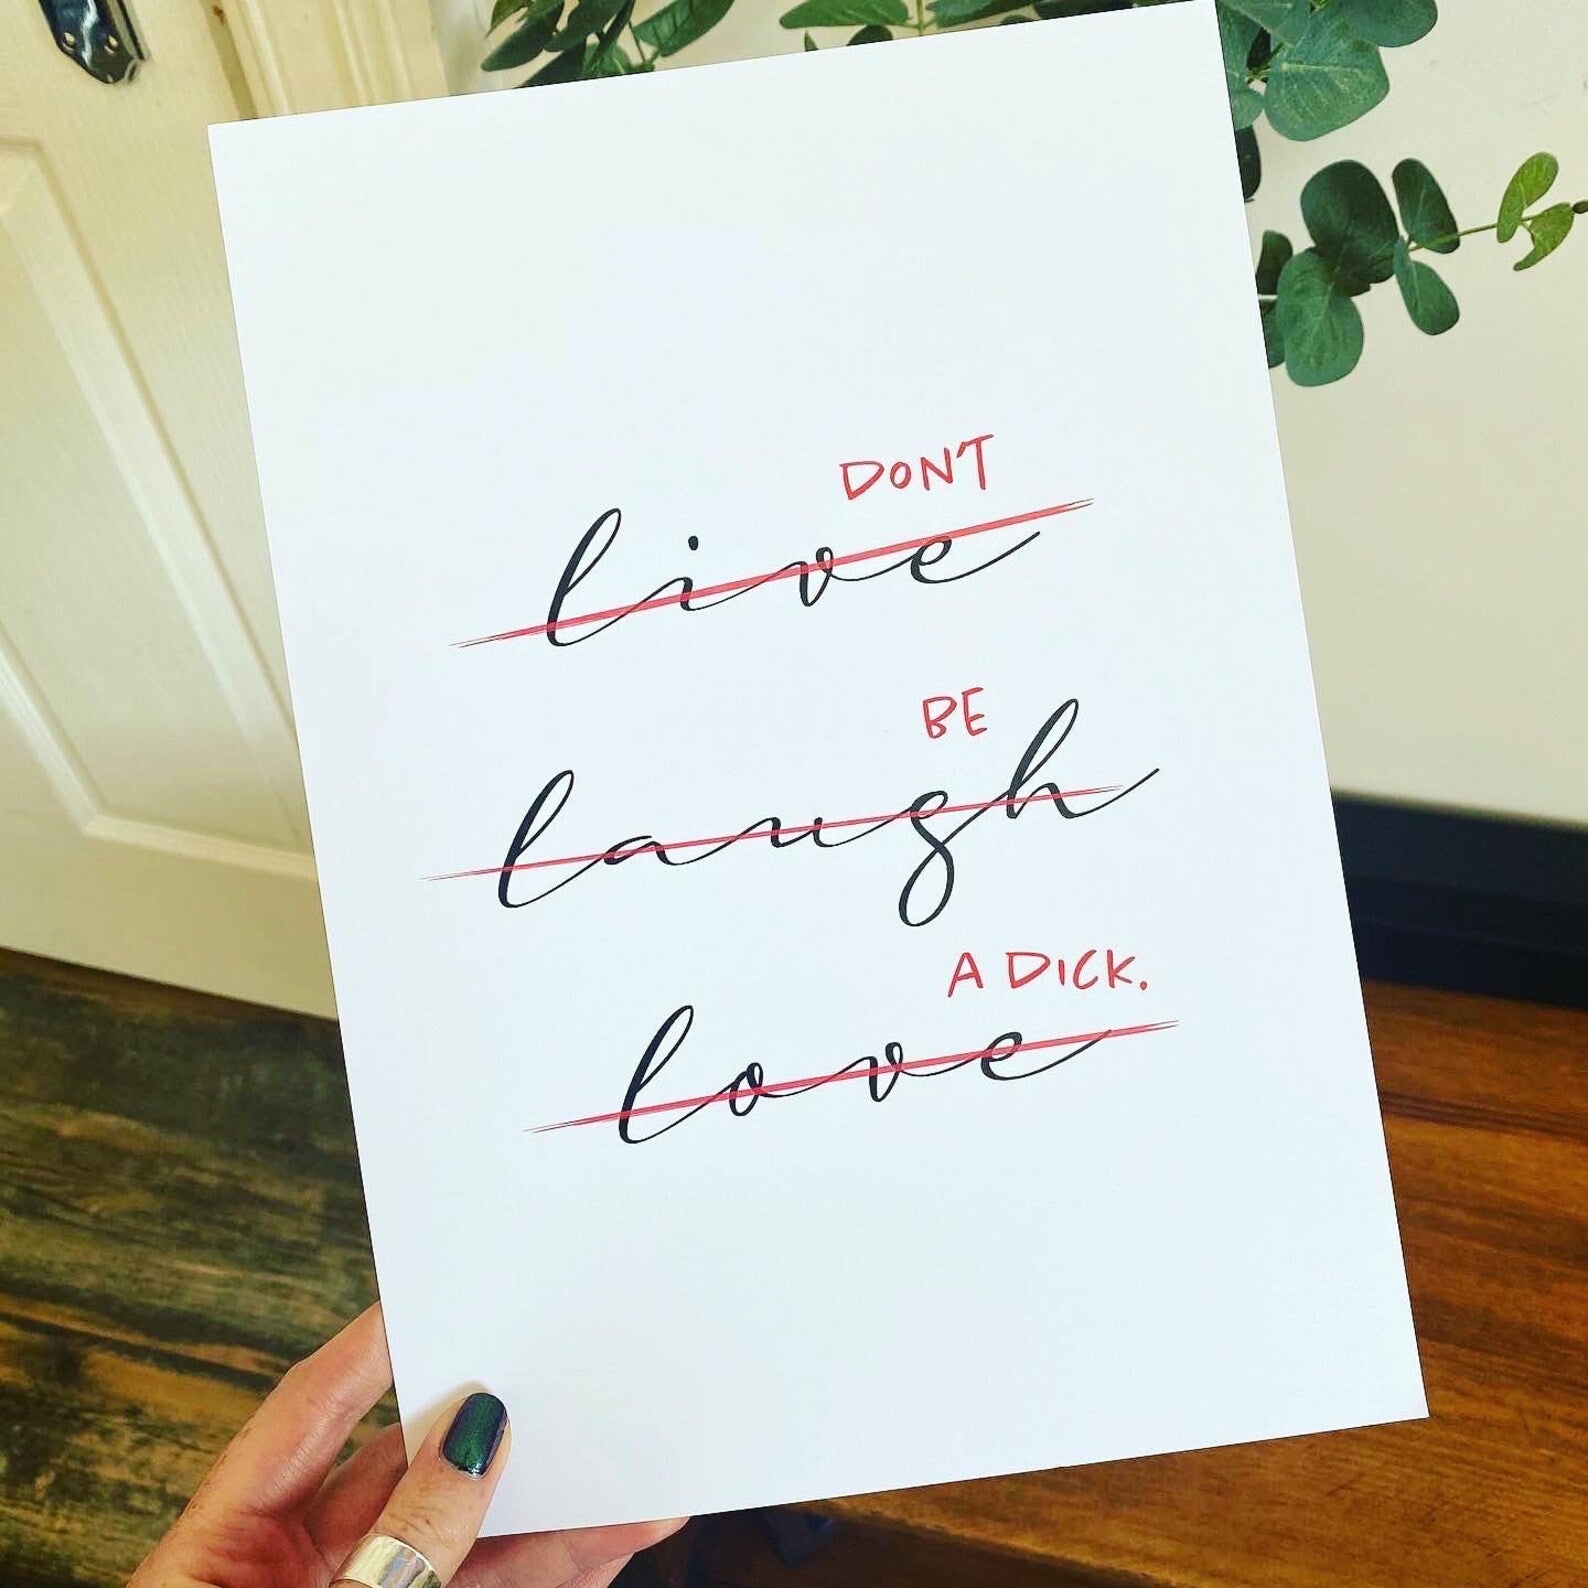 DON'T
live
BE
laugh
A DICK.
love